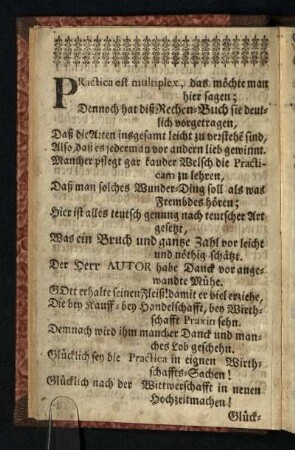 PRactica est multiplex, das möchte man
hier sagen;
Dennoch hat diß Rechen-Buch sie deut-
lich vorgetragen,
Daß die Arten insgesamt leicht zu verstehē sind,
Also, daß es jederman vor andern lieb gewinnt.
Mancher pflegt gar kauder Welsch die Practi-
cam zu lehren,
Daß man solches Wunder-Ding soll als was
Frembdes hören;
Hier ist alles teutsch genung nach teutscher Art
gesetzt,
Was ein Bruch und gantze Zahl vor leicht
und nöthig schätzt.
Der Herr AUTOR habe Danck vor ange-
wandte Mühe.
GOtt erhalte seinen Fleiß! damit er viel erziehe,
Die bey Kauff- bey Handelschafft, bey Wirth-
schafft Praxin sehn.
Demnach wird ihm mancher Danck und man-
ches Lob geschehn.
Glücklich sey die Practica in eignen Wirth-
schaffts-Sachen!
Glücklich nach der Wittwerschafft in neuen
Hochzeitmachen!
Glück-